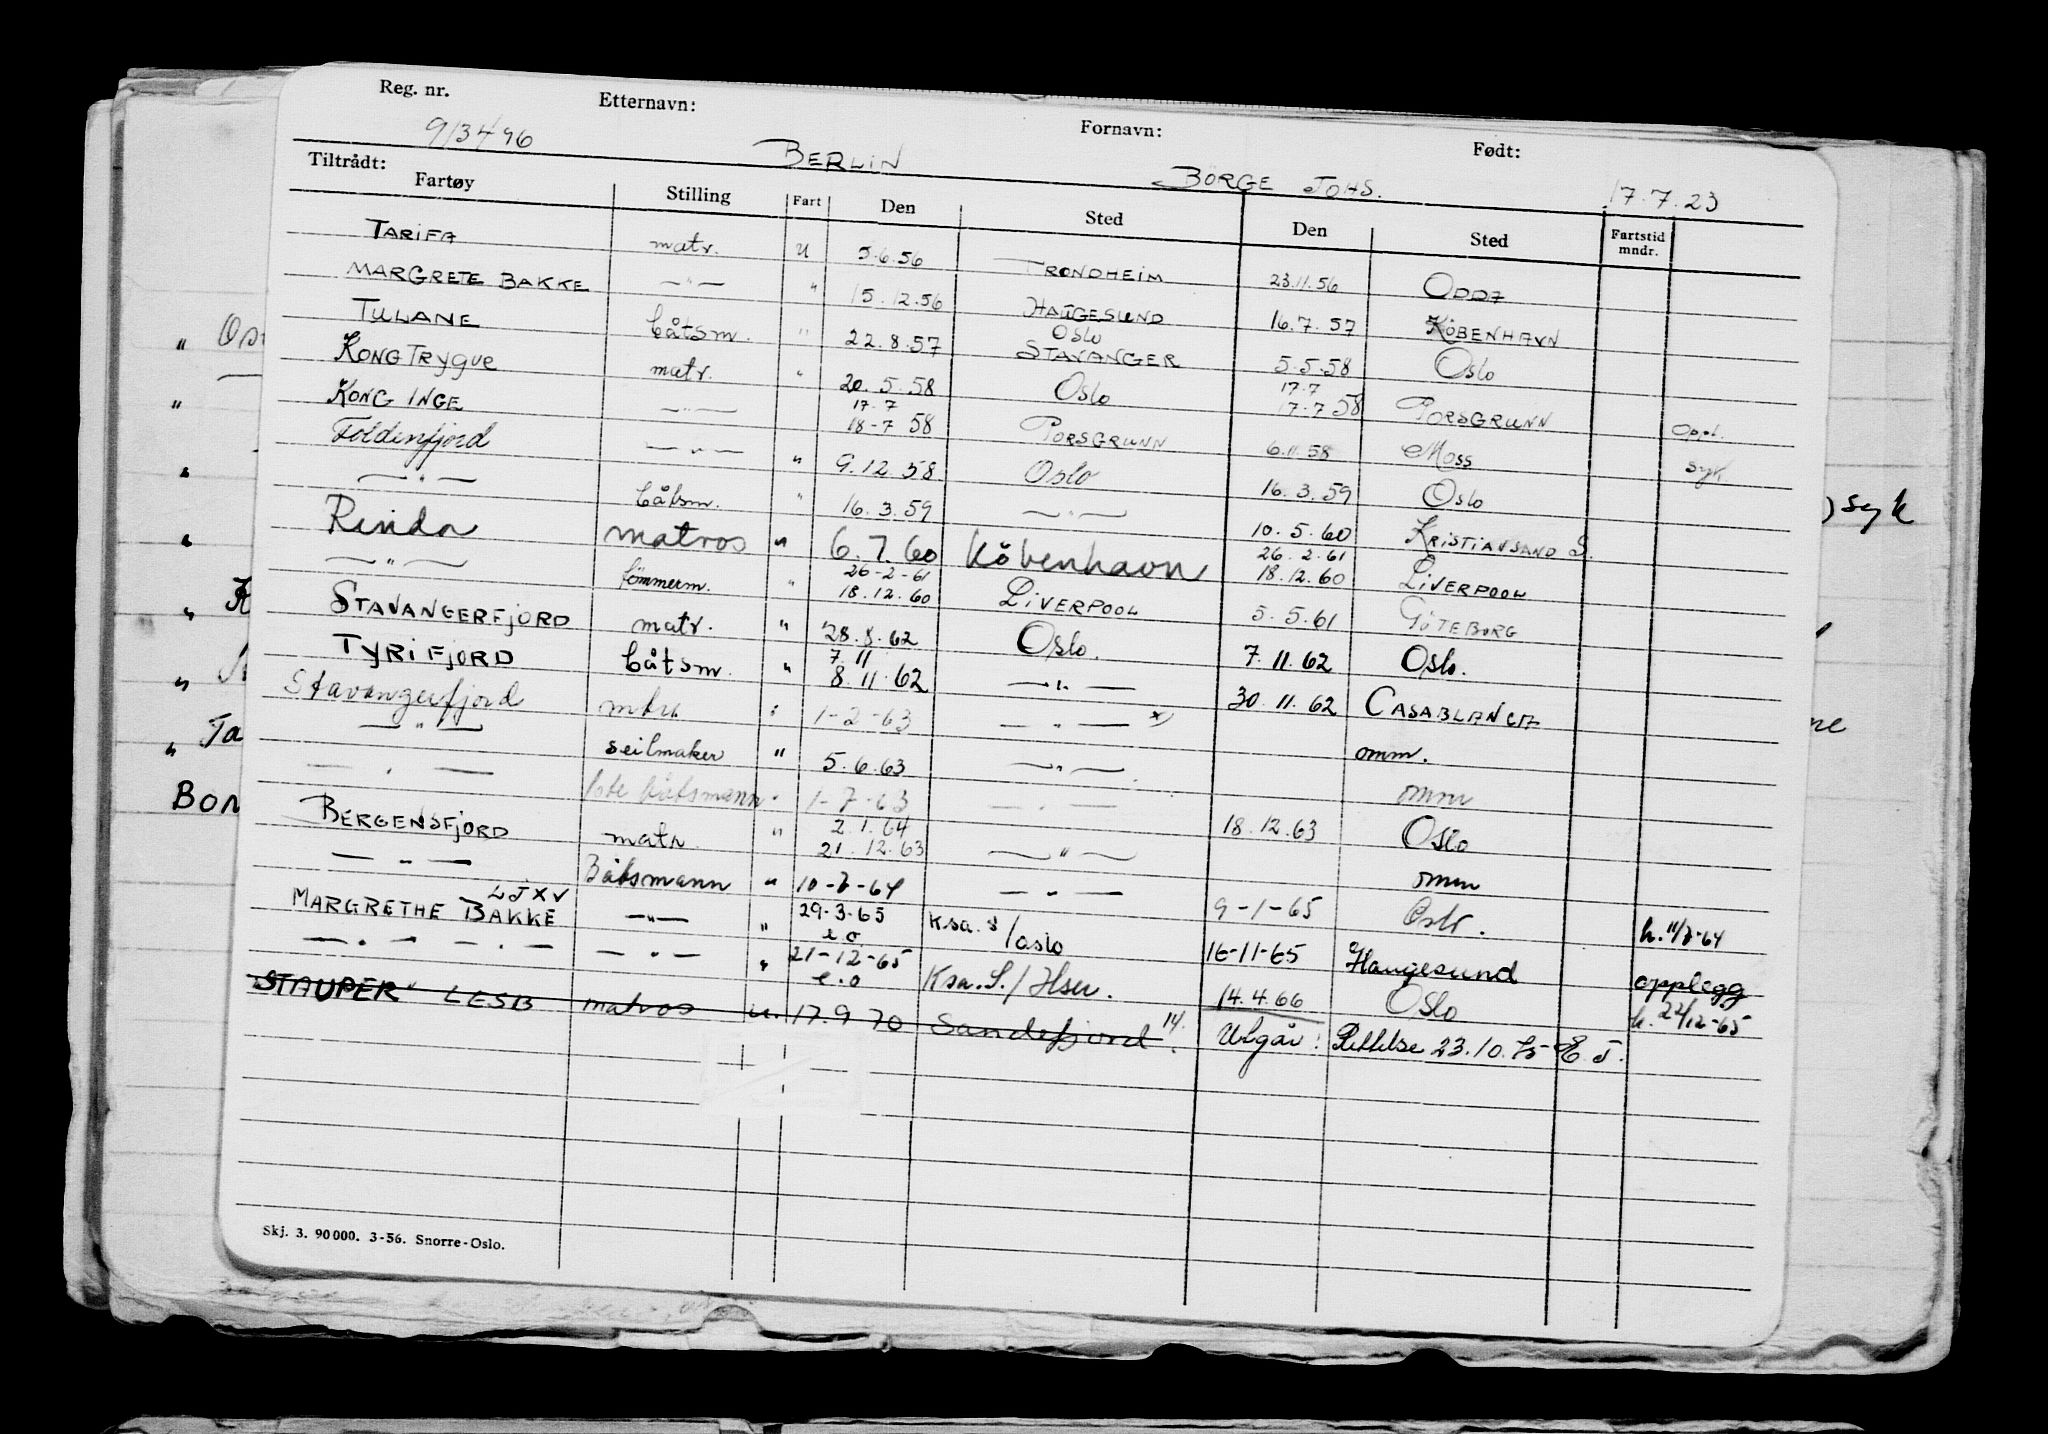 Reg. nr. Etternavn: Fornavn: Født:
913496 BERLIN BÖRGE JOHS. 17.7.23
Tiltrådt:
Fartøy Stilling Fart Den Sted Den Sted Fartstid mndr.
TARIFA matr. u 5.6.56 TRONDHEIM 23.11.56 ODDA
MARGRETE BAKKE —"— " 15.12.56 HAUGESUND 16.7.57 KÖBENHAVN
TULANE båtsm. " 22.8.57 OSLO STAVANGER 5.5.58 Oslo
KONG TRYGVE matr. " 20.5.58 Oslo 17.7 17.7 58 PORSGRUNN oppl.
KONG INGE —"— 17.7 18-7 58 PORSGRUNN 6.11.58 Moss syk
Foldenfjord —"— " 9.12.58 Oslo 16.3.59 Oslo
—"— båtsm. " 16.3.59 —"— 10.5.60 KRISTIANSAND S.
Rinda matros " 6.7.60 Köbenhavn 26.2.61 18.12.60 LIVERPOOL
—"— tömmerm. " 26-2-61 18.12.60 LIVERPOOL 5.5.61 GÖTEBORG
STAVANGERFJORD matr. " 28.8.62 Oslo. 7.11.62 Oslo.
TYRIFJORD båtsm. " 7.11 8.11.62 —"— 30.11.62 CASABLANCA
Stavangerfjord mtr " 1-2-63 —"— x)
—"— seilmaker " 5.6.63 —"— omm.
—"— båtsmann " 1-7-63 —"— omm
BERGENSFJORD matr. " 2.1.64 21.12.63 —"— 18.12.63 Oslo
—"— Båtsmann " 10-7-64 —"— omm
LJXV
MARGRETHE BAKKE —"— " 29-3-65 e.o Ksa. S/Oslo 9-1-65 Oslo.
—"— —"— —"— " 21-12-65 e.o Ksa.S./Hsu. 16-11-65 Haugesund opplegg
"STAUPER" LESB matros u. 17.9.70 Sandefjord 14. 14.4.66 Oslo h. 22/12-65
Utgår! Rettelse 23.10.75 E.J.
Skj. 3. 90000. 3-56. Snorre-Oslo.
" Os
" K
" Ta
Bon
) syk